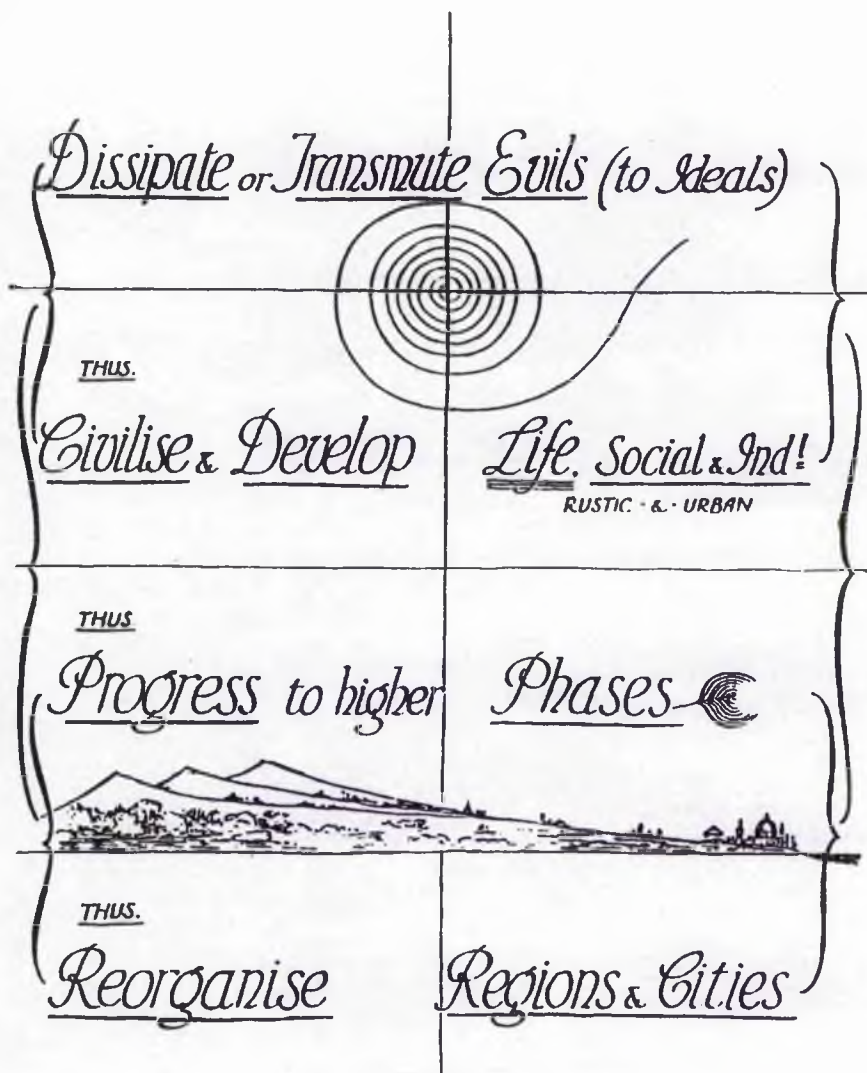 Dissipate or Transmute Evils (to Ideals)
THUS.
Civilise & Develop Life. Social & Indl.
RUSTIC · & · URBAN
THUS
Progress to higher Phases
THUS.
Reorganise Regions & Cities